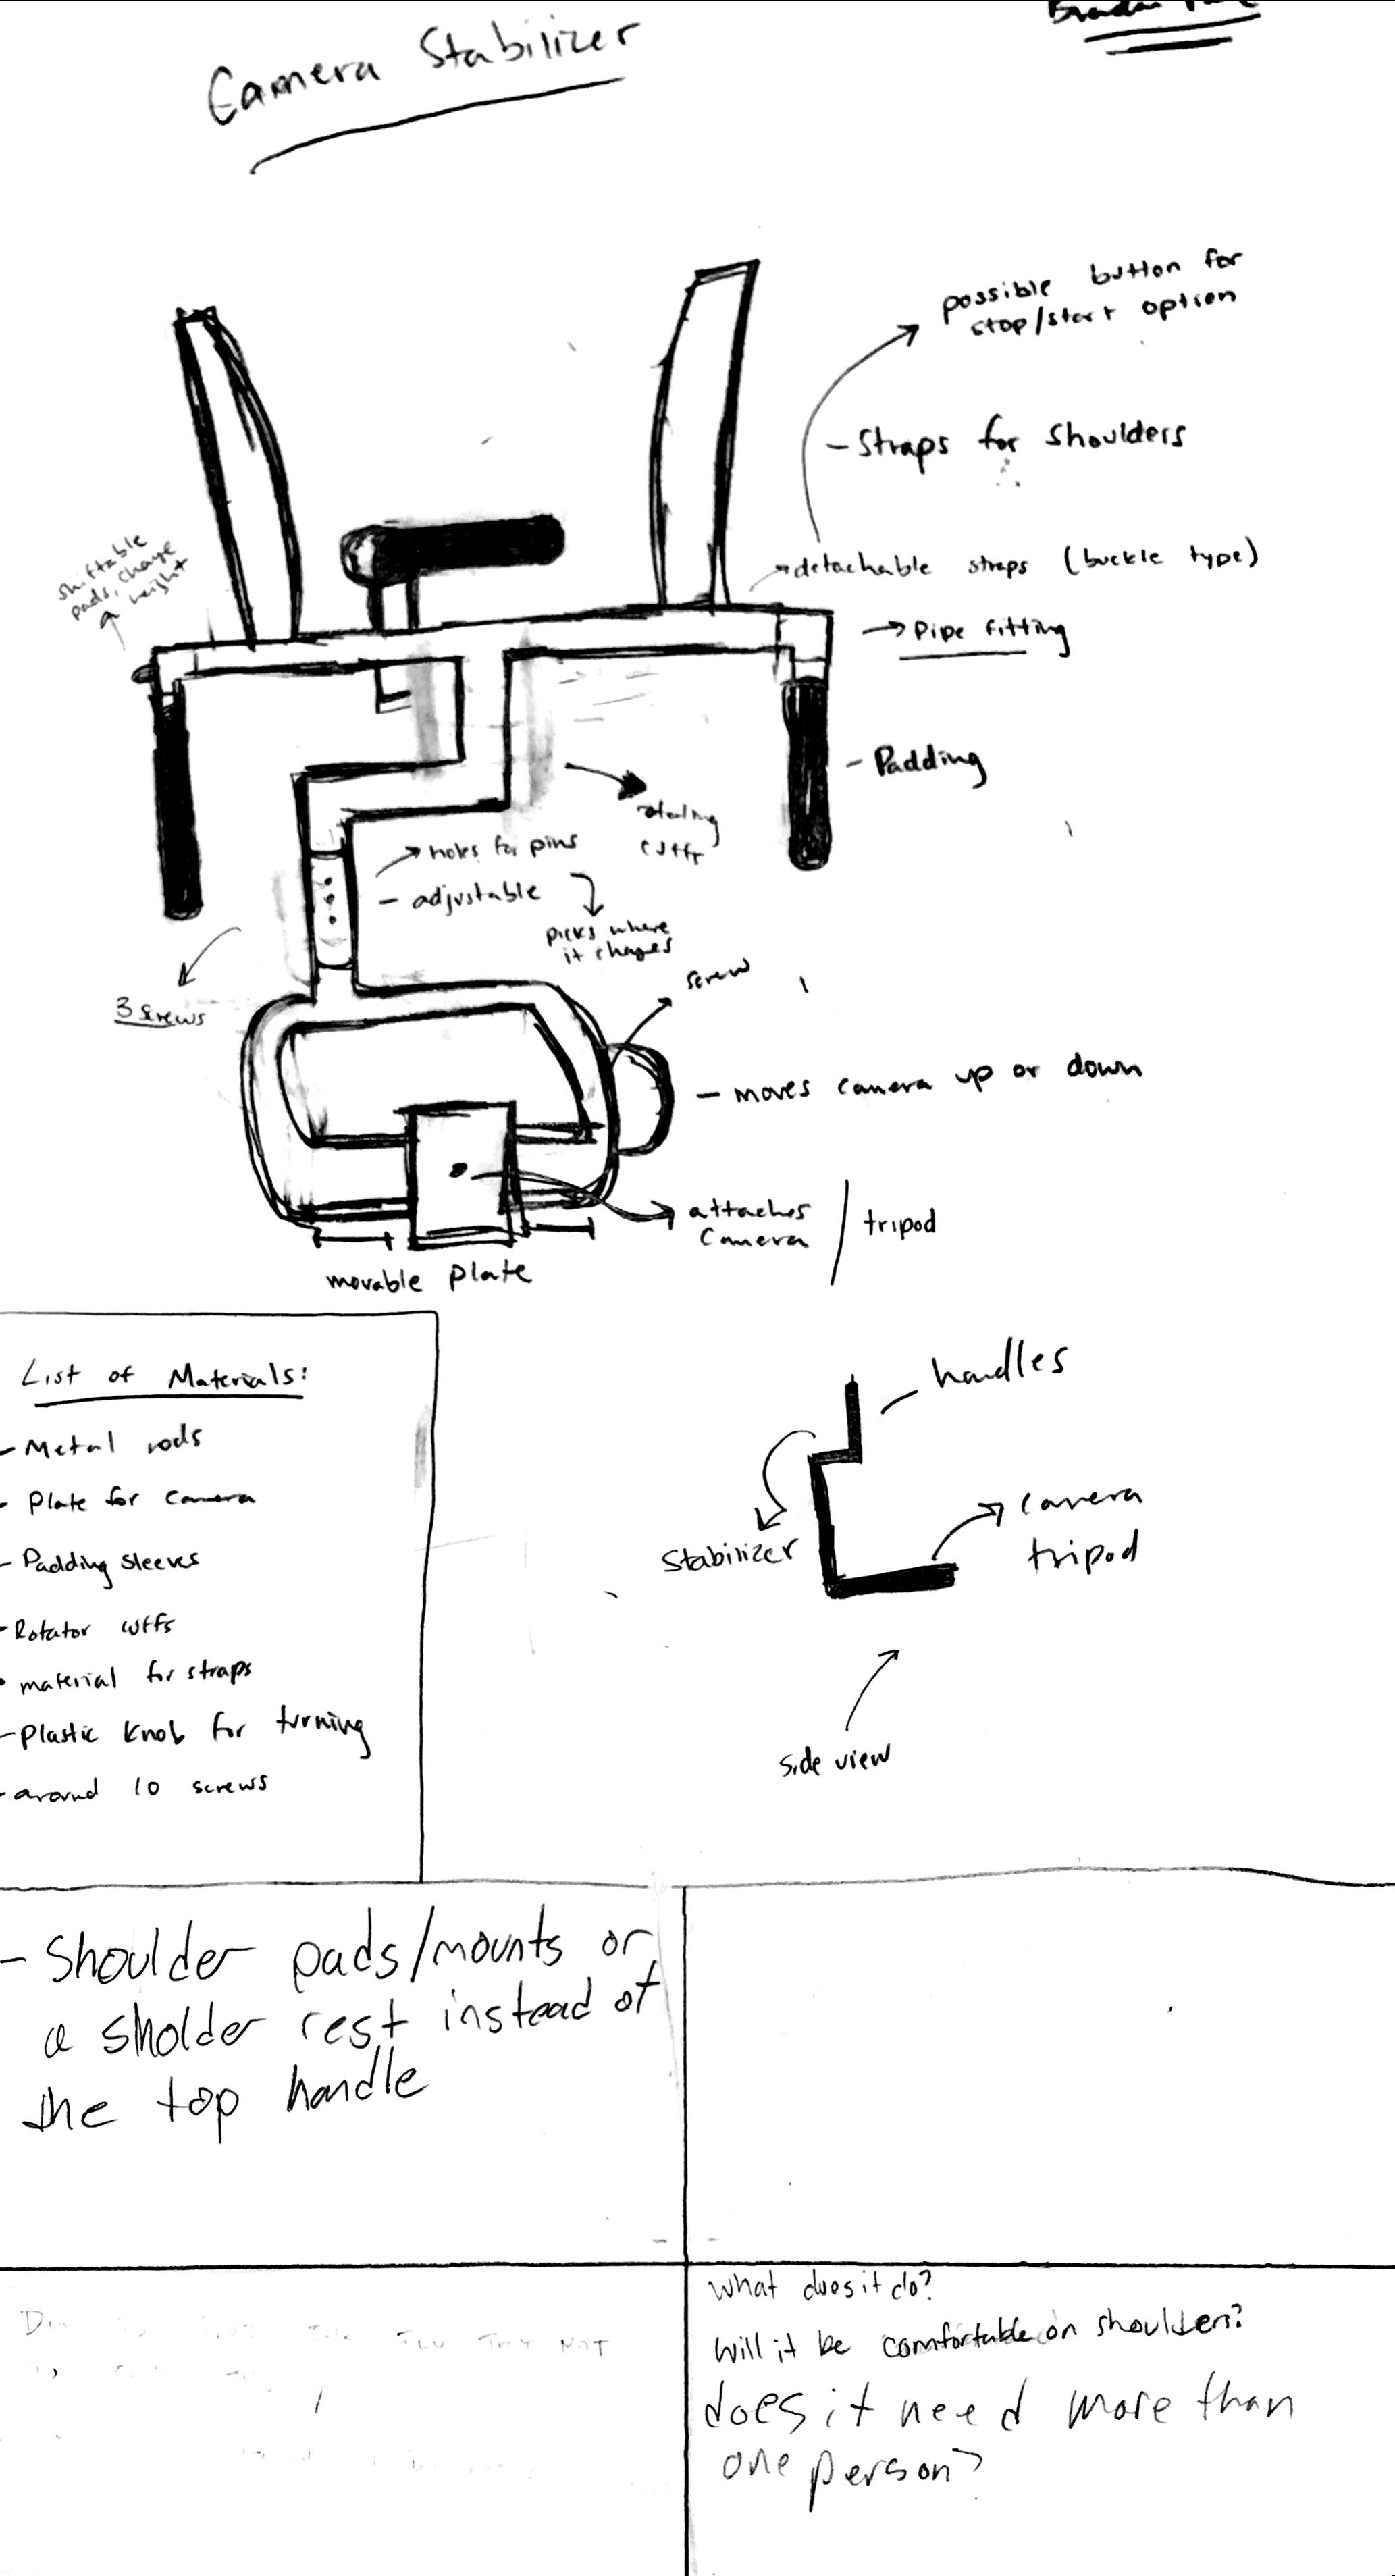 Camera Stabilizer
possible button for
stop/start option
- Straps for shoulders
detachable straps (buckle type)
Pipe fitting
shiftable
pads, change
height
- Padding
rotating
cuffs
holes for pins
- adjustable
picks where
it changes
3 screws
screw
- moves camera up or down
attaches
camera / tripod
movable plate
List of Materials:
- Metal rods
- Plate for camera
- Padding sleeves
- Rotator cuffs
- material for straps
- Plastic knob for turning
- around 10 screws
handles
Stabilizer
camera
tripod
side view
- Shoulder pads/mounts or
a sholder rest instead of
the top handle
What does it do?
Will it be comfortable on shoulders?
does it need more than
one person?